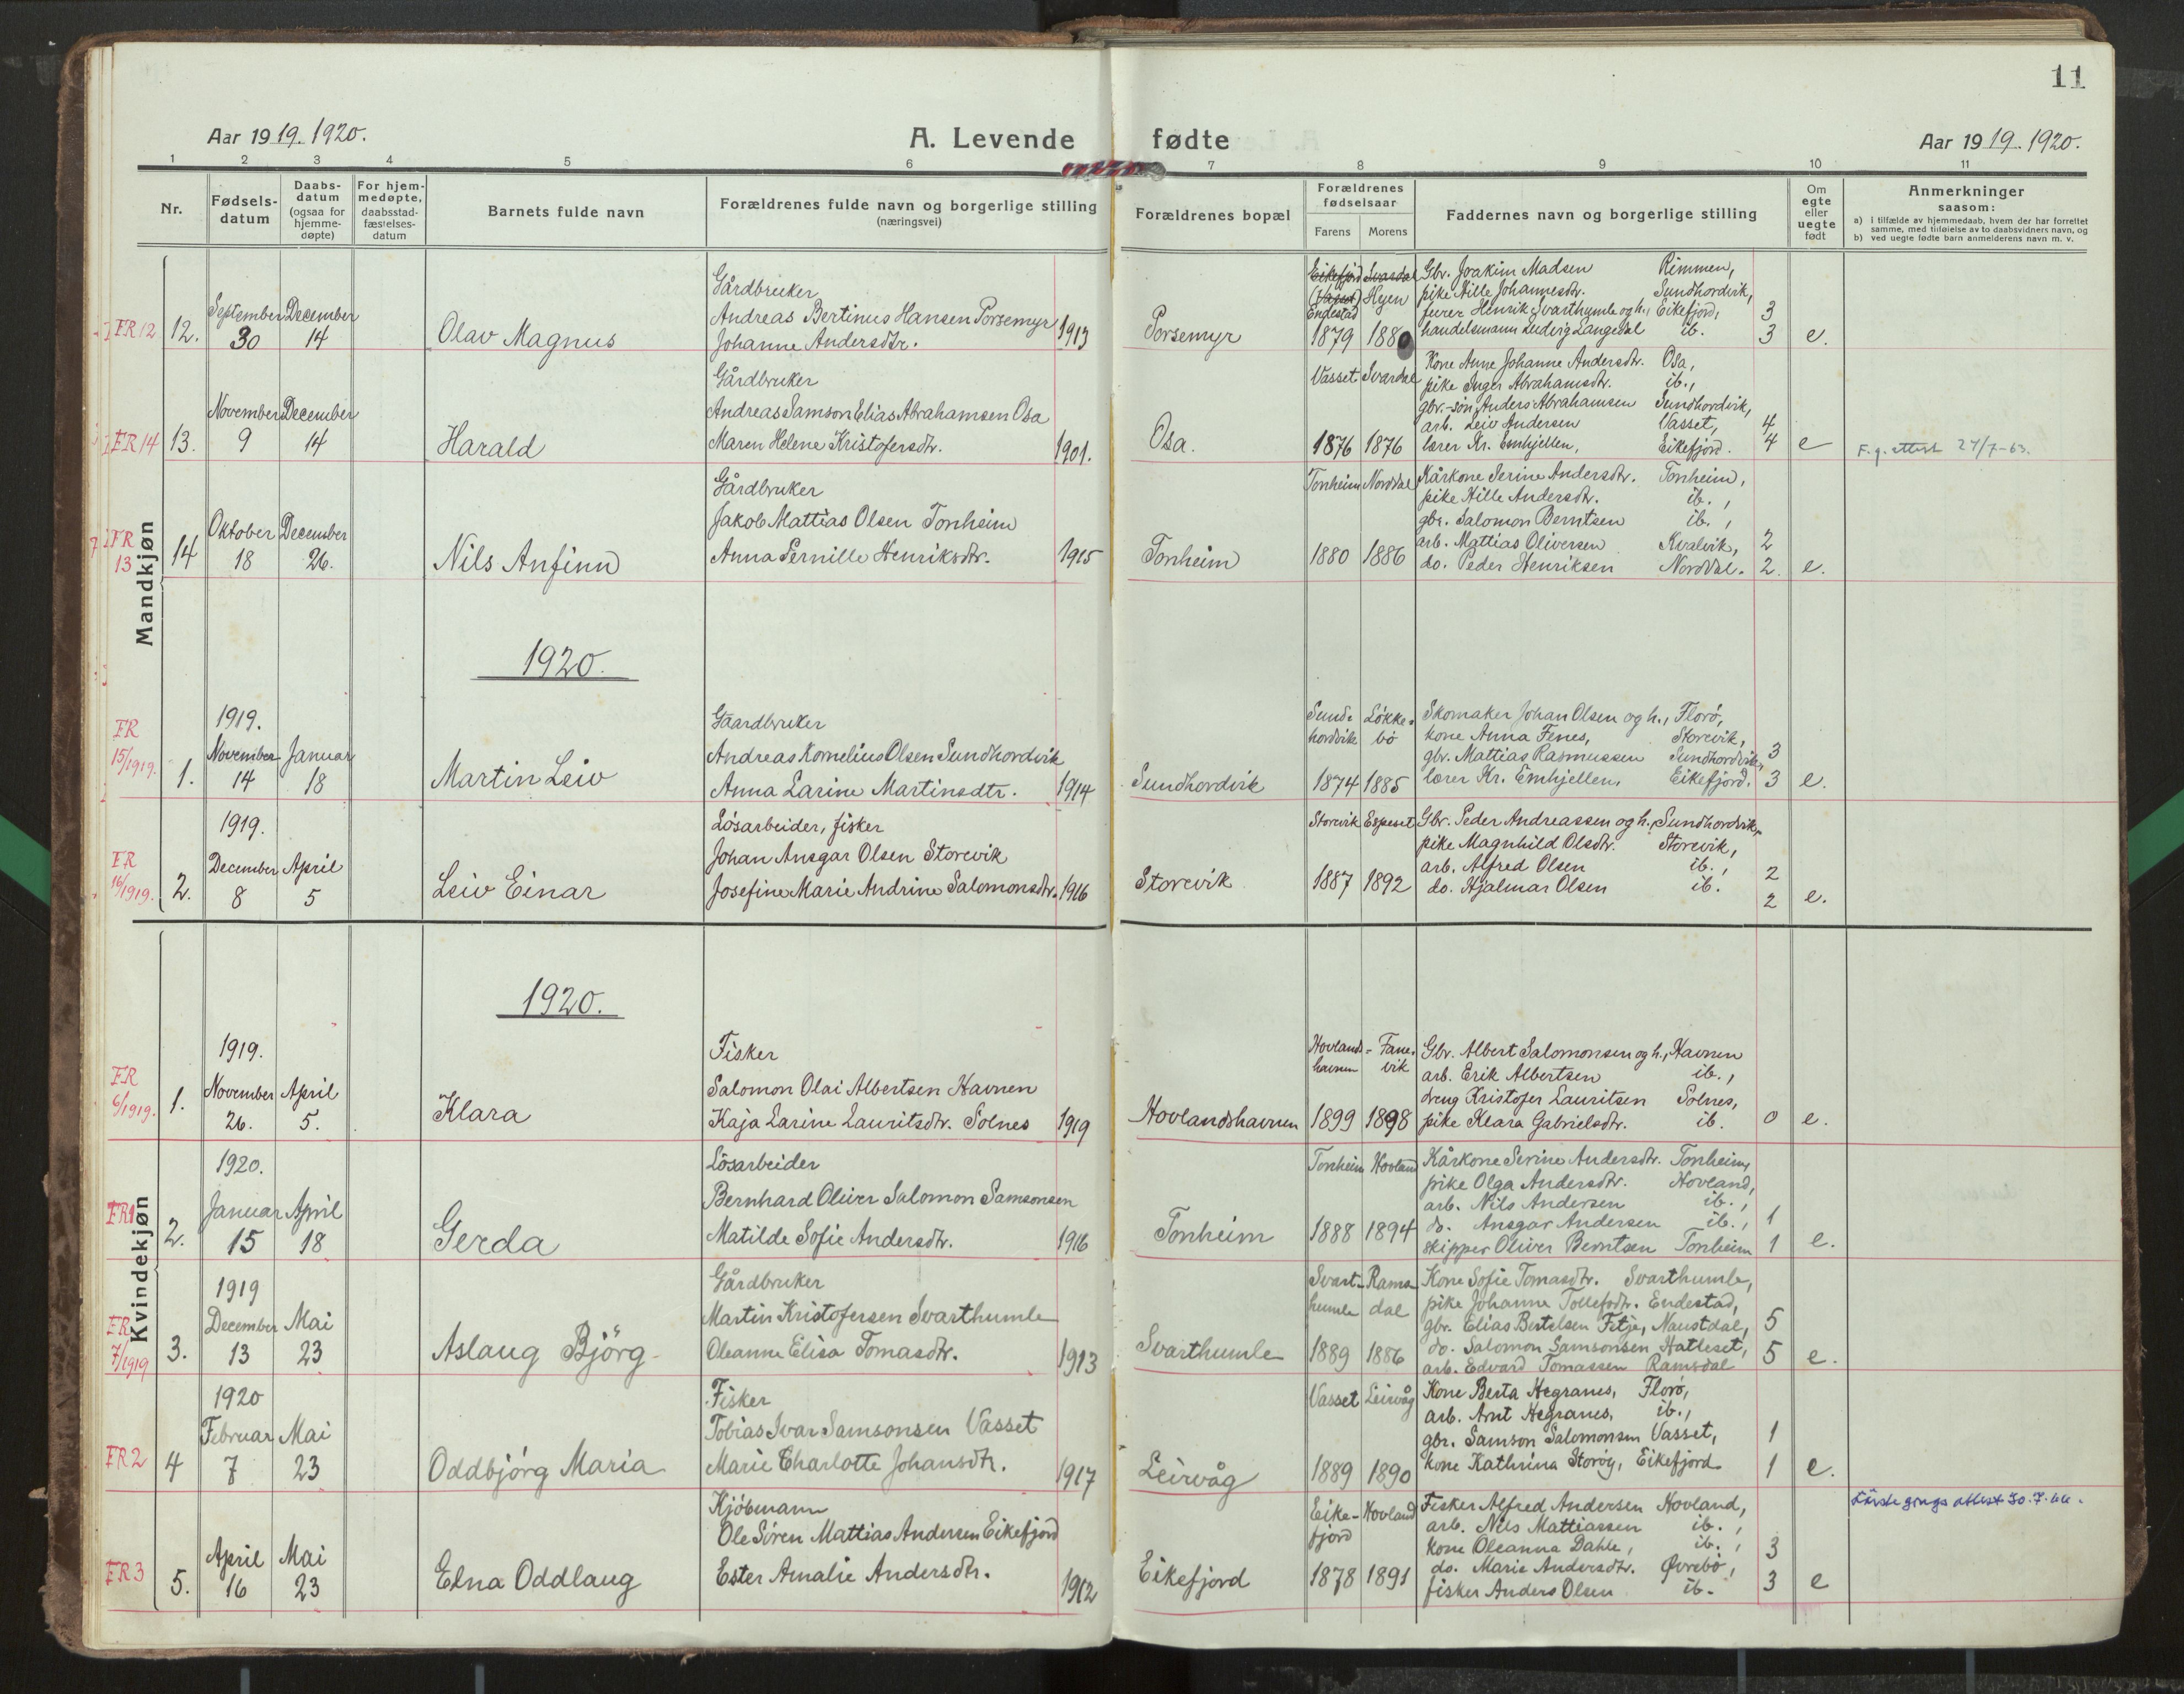 11
Aar 1919. 1920.
A. Levende fødte
Aar 1919. 1920.
1 2 3 4 5 6 7 8 9 10 11
Nr.
Fødsels-
datum
Daabs-
datum
(ogsaa for
hjemme-
døpte)
For hjem-
medøpte,
daabsstad-
fæstelses-
datum
Barnets fulde navn
Forældrenes fulde navn og borgerlige stilling
(næringsvei)
Forældrenes bopæl
Forældrenes
fødselsaar
Farens Morens
Faddernes navn og borgerlige stilling
Om
egte
eller
uegte
født
Anmerkninger
saasom:
a) i tilfælde av hjemmedaab, hvem der har forrettet
samme, med tilføielse av to daabsvidners navn, og
b) ved uegte fødte barn anmelderens navn m. v.
Mandkjøn
FR 12
12.
September
30
December
14
Olav Magnus
Gårdbruker
Andreas Bertinus Hansen Porsemyr
Johanne Andersdtr. 1913
Porsemyr
Eikefjord Svardal
(Vasset) Hyen
Endestad
1879 1880
Gbr. Joakim Madsen Rimmen,
pike Hille Johannesdtr. Sundhordvik,
furer Henrik Svarthumle og h., Eikefjord,
handelsmann Ludvig Langedal ib.
3
3
e.
FR 14
13.
November
9
December
14
Harald
Gårdbruker
Andreas Samson Elias Abrahamsen Osa
Maren Helene Kristofersdtr. 1901.
Osa.
Vasset Svardal
1876 1876
Kone Anne Johanne Andersdtr. Osa,
pike Inger Abrahamsdtr. ib.,
gbr.-søn Anders Abrahamsen Sundhordvik,
arb. Leiv Andersen Vasset,
lærer Kr. Emhjellen, Eikefjord.
4
4
e
F.g. attest 27/7-63.
FR
13
14
Oktober
18
December
26.
Nils Anfinn
Gårdbruker
Jakob Mattias Olsen Tonheim
Anna Pernille Henriksdtr. 1915
Tonheim
Tonheim Norddal
1880 1886
Kårkone Serine Andersdtr. Tonheim,
pike Hille Andersdtr. ib.,
gbr. Salomon Berntsen ib.,
arb. Mattias Oliversen Kvalvik,
do. Peder Henriksen Norddal.
2
2.
e.
1920.
FR
15/1919.
1.
1919.
November
14
Januar
18
Martin Leiv
Gaardbruker
Andreas Kornelius Olsen Sundhordvik
Anna Larine Martinsdtr. 1914
Sundhordvik
Sund- Løkke-
hordvik bø
1874 1885
Skomaker Johan Olsen og h., Florø,
kone Anna Fenes, Storevik,
gbr. Mattias Rasmussen Sundhordvik,
lærer Kr. Emhjellen, Eikefjord.
3
3
e.
FR
16/1919.
2.
1919.
December
8
April
5
Leiv Einar
Løsarbeider, fisker
Johan Ansgar Olsen Storevik
Josefine Marie Andrine Salomonsdtr. 1916
Storevik
Storevik Espeset
1887 1892
Gbr. Peder Andreassen og h., Sundhordvik,
pike Magnhild Olsdtr. Storevik,
arb. Alfred Olsen ib.,
do. Hjalmar Olsen ib.
2
2
e.
Kvindekjøn
1920.
FR
6/1919.
1.
1919.
November
26.
April
5.
Klara
Fisker
Salomon Olai Albertsen Havnen
Kaja Larine Lauritsdtr. Solnes 1919
Hovlandshavnen
Hovlands- Fane-
havnen vik
1899 1898
Gbr. Albert Salomonsen og h., Havnen
arb. Erik Albertsen ib.,
dreng Kristofer Lauritsen Solnes,
pike Klara Gabrielsdtr. ib.
0
e.
FR 1
2.
1920.
Januar
15
April
18
Gerda
Løsarbeider
Bernhard Oliver Salomon Samsonsen
Matilde Sofie Andersdtr. 1916
Tonheim
Tonheim Hovland
1888 1894
Kårkone Serine Andersdtr. Tonheim,
pike Olga Andersdtr. Hovland,
arb. Nils Andersen ib.,
do. Ansgar Andersen ib.,
skipper Oliver Berntsen Tonheim
1
1
e.
FR
7/1919
3.
1919
December
13
Mai
23
Aslaug Björg
Gårdbruker
Martin Kristofersen Svarthumle
Oleanne Elisa Tomasdtr. 1913
Svarthumle
Svart- Rams-
humle dal
1889 1886
Kone Sofie Tomasdtr. Svarthumle,
pike Johanne Tollefsdtr. Endestad,
gbr. Elias Bertelsen Fetje, Naustdal,
do. Salomon Samsonsen Hatleset,
arb. Edvard Tomassen Ramsdal
5
5
e.
FR 2
4
1920
Februar
7
Mai
23
Oddbjørg Maria
Fisker
Tobias Ivar Samsonsen Vasset
Marie Charlotte Johansdtr. 1917
Leirvåg
Vasset Leirvåg
1889 1890
Kone Berta Hegranes, Florø,
arb. Arnt Hegranes, ib.,
gbr. Samson Salomonsen Vasset,
kone Kathrina Storøy, Eikefjord
1
1
e.
FR 3
5.
April
16
Mai
23
Elna Oddlaug
Kjøbmann
Ole Søren Mattias Andersen Eikefjord
Ester Amalie Andersdtr. 1912
Eikefjord
Eike- Hovland
fjord
1878 1891
Fisker Alfred Andersen Hovland,
arb. Nils Mattiassen ib.,
kone Oleanna Dahle, ib.,
do. Marie Andersdtr. Øvrebø,
fisker Anders Olsen ib.
3
3
e
Første gangs attest 30.7.66.